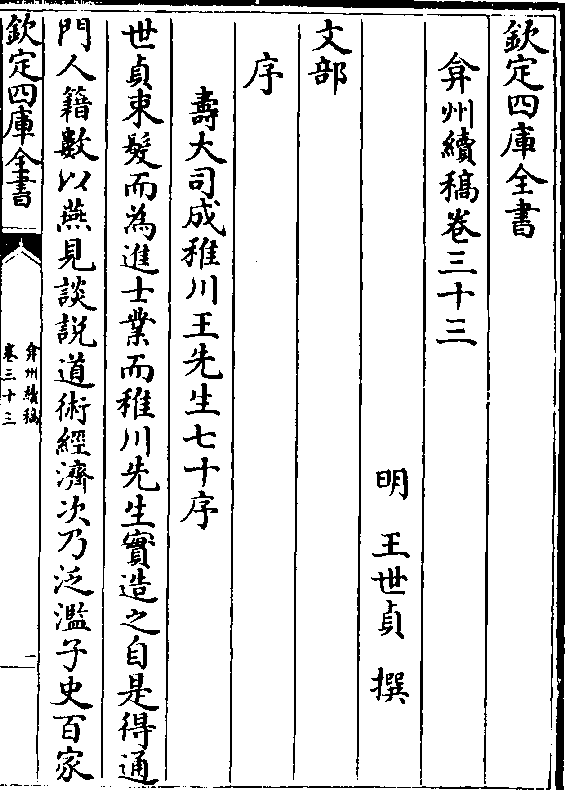 欽定四庫全書
弇州續稿卷三十三
明 王世貞 撰
文部
序
壽大司成稚川王先生七十序
世貞束髮而為進士業而稚川先生實造之自是得通
門人籍數以燕見談説道術經濟次乃泛濫子史百家
欽定四庫全書
弇州續稿
卷三十三
一